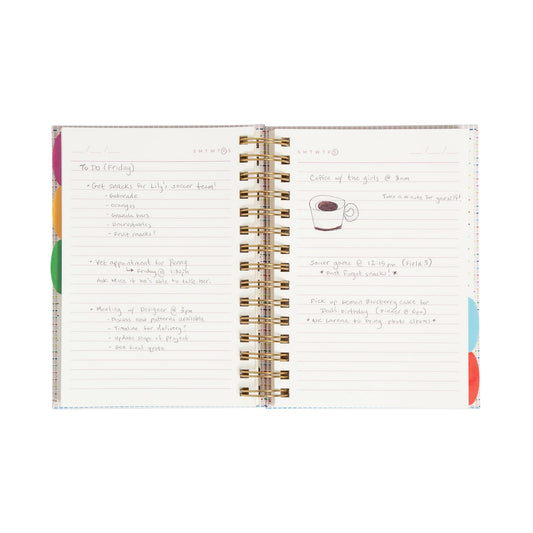 __/__/__ S M T W T F S
To Do (Friday)
• Get snacks for Lily's soccer team!
- Gatorade
- Oranges
- Granola bars
- Fruit snacks!
• Vet appointment for
↳ Friday @ 1:30pm
Ask Mike if he's able to take her.
• Meeting w/ Designer @ 3pm
- Discuss new patterns available
- Timeline for delivery?
- Update steps of project
- Get final quote
__/__/__ S M T W T F S
Coffee w/ the girls @ 8am
Take a minute for yourself!
Soccer game @ 12:15pm (Field 3)
* Don't forget snacks! *
Pick up Lemon Blueberry cake for
Dad's birthday (Dinner @ 6pm)
* to bring photo *